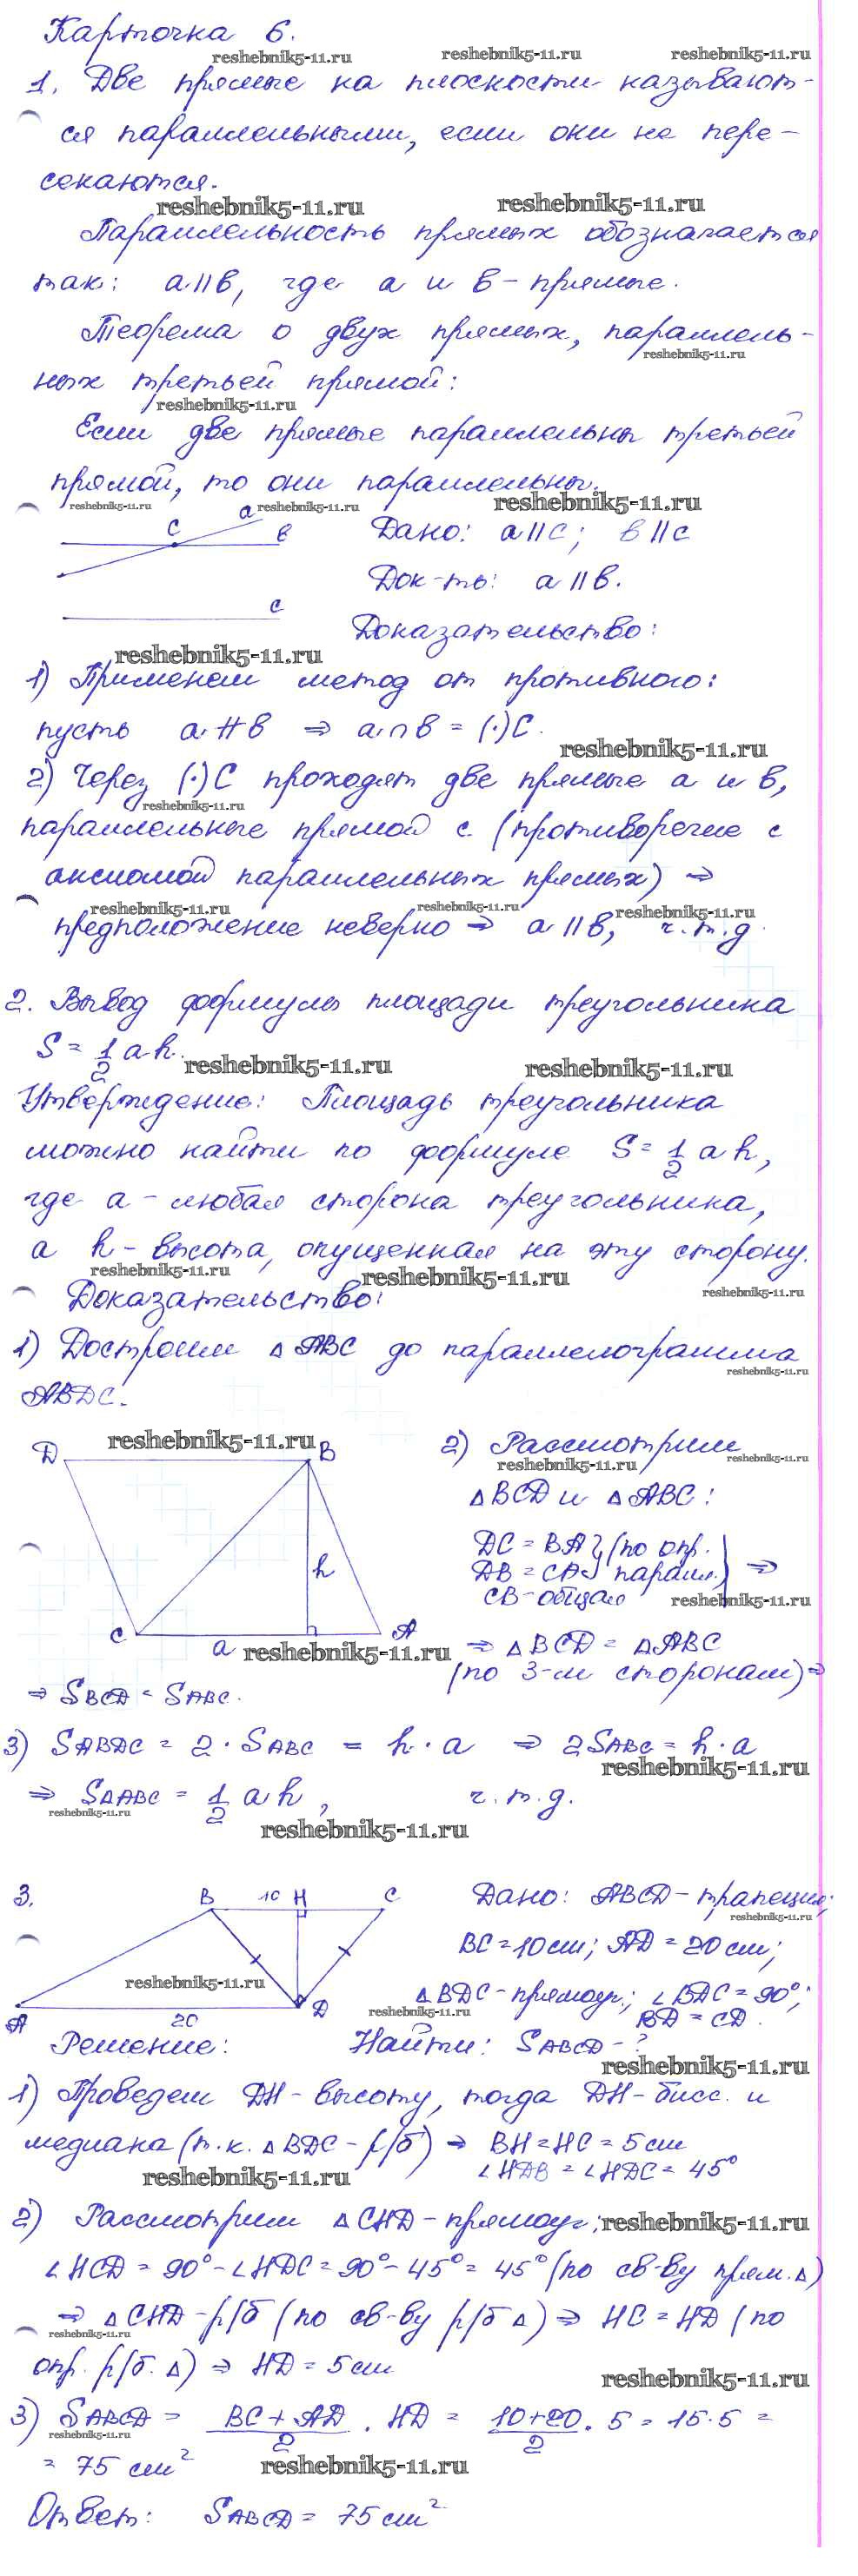 Карточка 6.
reshebnik5-11.ru reshebnik5-11.ru reshebnik5-11.ru
1. Две прямые на плоскости называют-
ся параллельными, если они не пере-
секаются.
reshebnik5-11.ru reshebnik5-11.ru
Параллельность прямых обозначается
так: a||b, где a и b - прямые.
Теорема о двух прямых, параллель-
reshebnik5-11.ru
ных третьей прямой:
reshebnik5-11.ru
Если две прямые параллельны третьей
прямой, то они параллельны.
reshebnik5-11.ru reshebnik5-11.ru reshebnik5-11.ru
C a b
Дано: a||c; b||c
Док-ть: a||b.
c
Доказательство:
reshebnik5-11.ru
1) Применим метод от противного:
пусть a∦b ⇒ a∩b = (·)C.
reshebnik5-11.ru
2) Через (·)C проходят две прямые a и b,
reshebnik5-11.ru
параллельные прямой c (противоречие с
аксиомой параллельных прямых) ⇒
reshebnik5-11.ru reshebnik5-11.ru reshebnik5-11.ru
предположение неверно ⇒ a||b, ч.т.д.
2. Вывод формулы площади треугольника
S = 1/2 ah.
reshebnik5-11.ru reshebnik5-11.ru
Утверждение: Площадь треугольника
можно найти по формуле S = 1/2 ah,
где a - любая сторона треугольника,
а h - высота, опущенная на эту сторону.
reshebnik5-11.ru reshebnik5-11.ru reshebnik5-11.ru
Доказательство:
1) Достроим △ABC до параллелограмма
reshebnik5-11.ru
ABDC.
D reshebnik5-11.ru B
h
C a A
reshebnik5-11.ru
2) Рассмотрим
reshebnik5-11.ru reshebnik5-11.ru
△BCD и △ABC:
DC = BA } (по опр.
DB = CA } паралл.)
CB - общая } ⇒
reshebnik5-11.ru
⇒ △BCD = △ABC
(по 3-м сторонам) ⇒
⇒ SBCD = SABC.
3) SABDC = 2 · SABC = h · a ⇒ 2SABC = h · a
reshebnik5-11.ru
⇒ S△ABC = 1/2 ah, ч.т.д.
reshebnik5-11.ru
reshebnik5-11.ru
3.
B 10 H C
reshebnik5-11.ru
A 20 D
Дано: ABCD - трапеция;
reshebnik5-11.ru
BC = 10 см; AD = 20 см;
△BDC - прямоуг.; ∠BDC = 90°;
reshebnik5-11.ru
BD = CD.
Найти: SABCD - ?
reshebnik5-11.ru
Решение:
1) Проведем DH - высоту, тогда DH - бисс. и
медиана (т.к. △BDC - р/б) ⇒ BH = HC = 5 см
reshebnik5-11.ru
∠HDB = ∠HDC = 45°
2) Рассмотрим △CHD - прямоуг.:
reshebnik5-11.ru
∠HCD = 90° - ∠HDC = 90° - 45° = 45° (по св-ву прям. △)
⇒ △CHD - р/б (по св-ву р/б △) ⇒ HC = HD (по
reshebnik5-11.ru
опр. р/б. △) ⇒ HD = 5 см
reshebnik5-11.ru
3) SABCD = (BC + AD)/2 · HD = (10+20)/2 · 5 = 15·5 =
reshebnik5-11.ru
= 75 см²
reshebnik5-11.ru
Ответ: SABCD = 75 см².